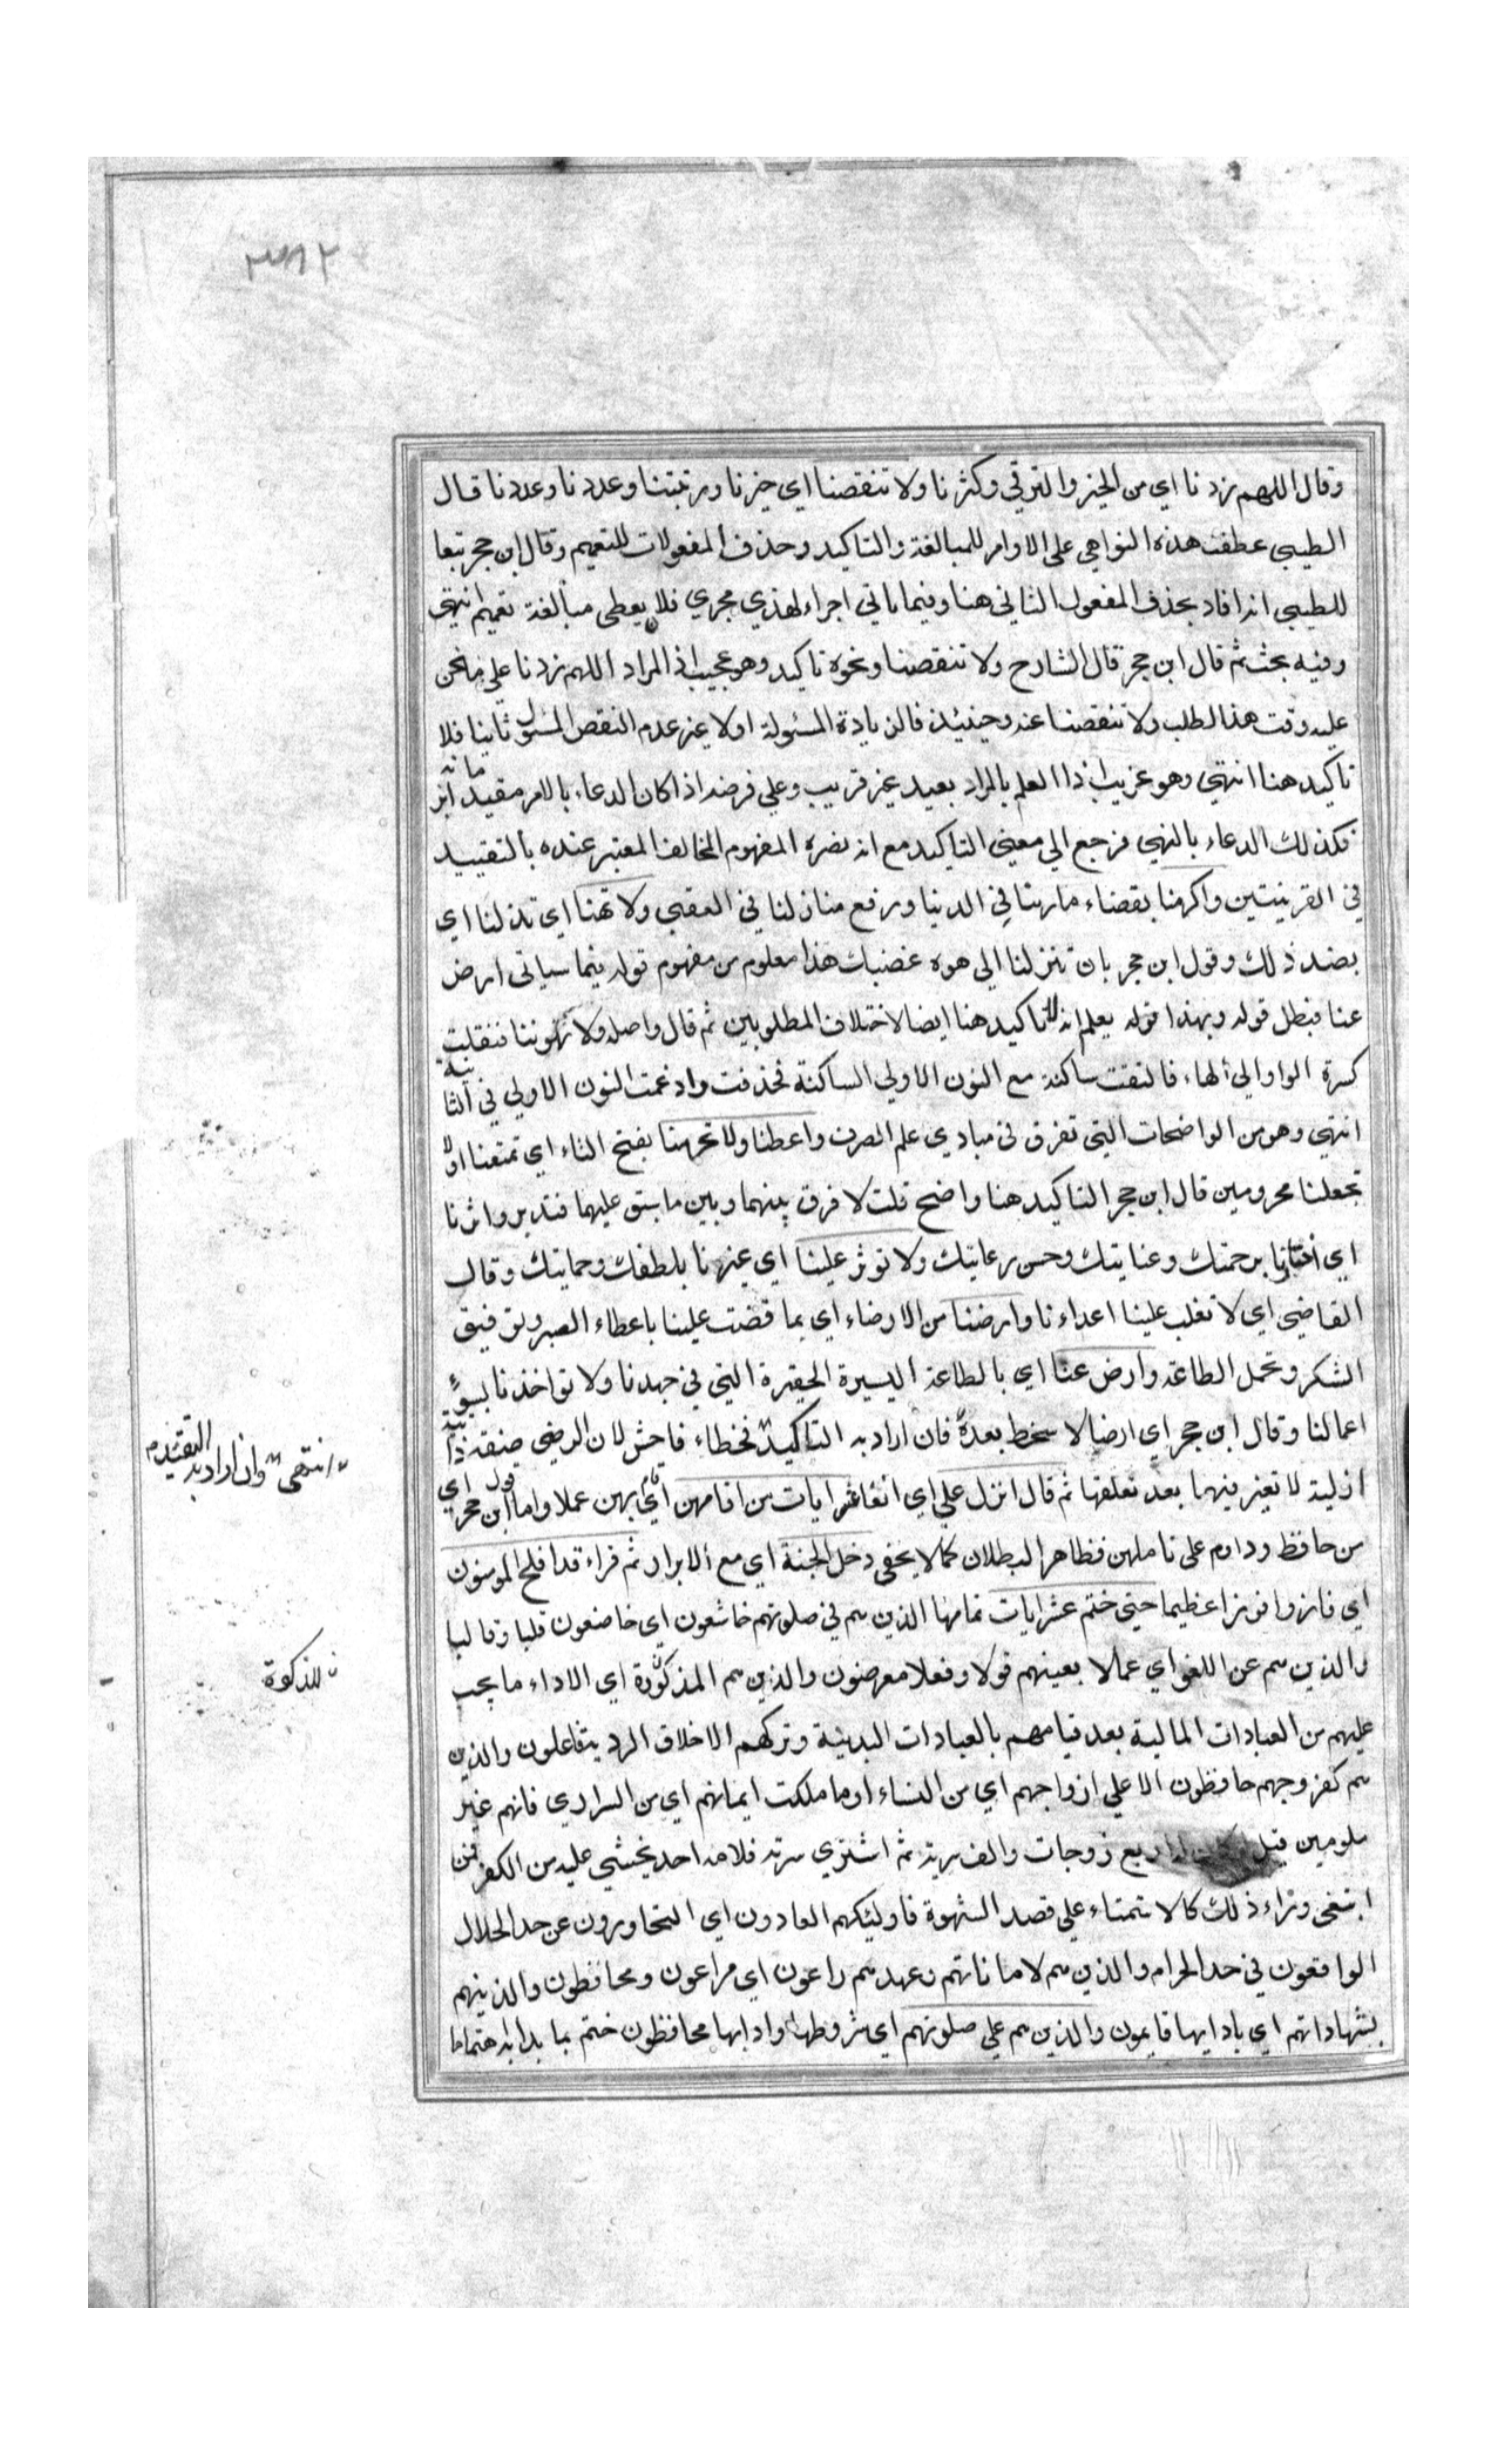 ٣٨٢
وقال اللهم زدنا اي من الخير والترقي وكثرنا ولا تنقصنا اي خيرنا ومرتبتنا وعددنا وعددنا قال
الطيبي عطفت هذه النواهي على الاوامر للمبالغة والتاكيد وحذف المفعولات للتعميم وقال ابن حجر تبعا
للطيبي انه افاد بحذف المفعول الثاني هنا وفيما ياتي اجراء لهذي مجري فلا يعطى مبالغة تعميم انتهى
وفيه بحث ثم قال ابن حجر قال الشارح ولا تنقصنا ونحوه تاكيد وهو عجيب اذ المراد اللهم زدنا على ما نحن
عليه وقت هذا الطلب ولا تنقصنا عنه وحينئذ فالزيادة المسئولة اولا غير عدم النقص المسئول ثانيا فلا
تاكيد هنا انتهى وهو غريب اذ العلم بالمراد بعيد غير قريب وعلى فرضه اذا كان الدعاء بالامر مقيد ابزمانه
فكذلك الدعاء بالنهي فرجع الى معنى التاكيد مع انه يضره المفهوم المخالف المعتبر عنده بالتقييد
في القرينتين واكرمنا بقضاء ماربنا في الدنيا ورفع منازلنا في العقبي ولا تهنا اي تذلنا اي
بضد ذلك وقول ابن حجر بان تنزلنا الى هوة غضبك هذا معلوم من مفهوم قوله فيما سياتي ارض
عنا فبطل قوله وبهذا قوله يعلم انه لا تاكيد هنا ايضا لاختلاف المطلوبين ثم قال واصله ولا تهوننا فنقلت
كسرة الواو الى الهاء فالتقت ساكنة مع النون الاولي الساكنة فحذفت وادغمت النون الاولي في الثانية
انتهى وهو من الواضحات التي تعرف في مبادي علم الصرف واعطنا ولا تحرمنا بفتح التاء اي تمنعنا اولا
تجعلنا محرومين قال ابن حجر التاكيد هنا واضح قلت لا فرق بينهما وبين ما سبق عليهما فتدبر واثرنا
اي اخترنا برحمتك وعنايتك وحسن رعايتك ولا توثر علينا اي غيرنا بلطفك وحمايتك وقال
القاضي اي لا تغلب علينا اعداءنا وارضنا من الارضاء اي بما قضت علينا باعطاء الصبر وتوفيق
الشكر وتحمل الطاعة وارض عنا اي بالطاعة اليسيرة الحقيرة التي في جهدنا ولا تواخذنا بسوء
اعمالنا وقال ابن حجر اي ارضا لا سخط بعده فان اراد به التاكيد فخطاء فاحش لان الرضي صفة ذاتية
انتهى وان اراد به التقييد
ازلية لا تغير فيها بعد تعلقها ثم قال انزل علي اي انفا عشر ايات من اقامهن اي قام بهن عملا واما قول ابن حجر اي
من حافظ وداوم على تاملهن فظاهر البطلان كما لا يخفى دخل الجنة اي مع الابرار ثم قراء قد افلح المومنون
اي فازوا فوزا عظيما حتى ختم عشر ايات تمامها الذين هم في صلوتهم خاشعون اي خاضعون قلبا وقالبا
والذين هم عن اللغو اي عما لا يعنيهم قولا وفعلا معرضون والذين هم المذكورة اي الاداء ما يجب
للزكوة
عليهم من العبادات المالية بعد قيامهم بالعبادات البدنية وتركهم الاخلاق الردية فاعلون والذين
هم لفروجهم حافظون الا على ازواجهم اي من النساء او ما ملكت ايمانهم اي من السراري فانهم غير
ملومين قيل لو كان له اربع زوجات والف سرية ثم اشتري سرية فلامه احد يخشي عليه من الكفر فمن
ابتغى وراء ذلك كالاستمناء على قصد الشهوة فاوليئك هم العادون اي المتجاوزون عن حد الحلال
الواقعون في حد الحرام والذين هم لاماناتهم وعهدهم راعون اي مراعون ومحافظون والذينهم
بشهاداتهم اي بادايها قايمون والذين هم على صلوتهم اي شروطها وادابها محافظون ختم بما بدا به اهتماما